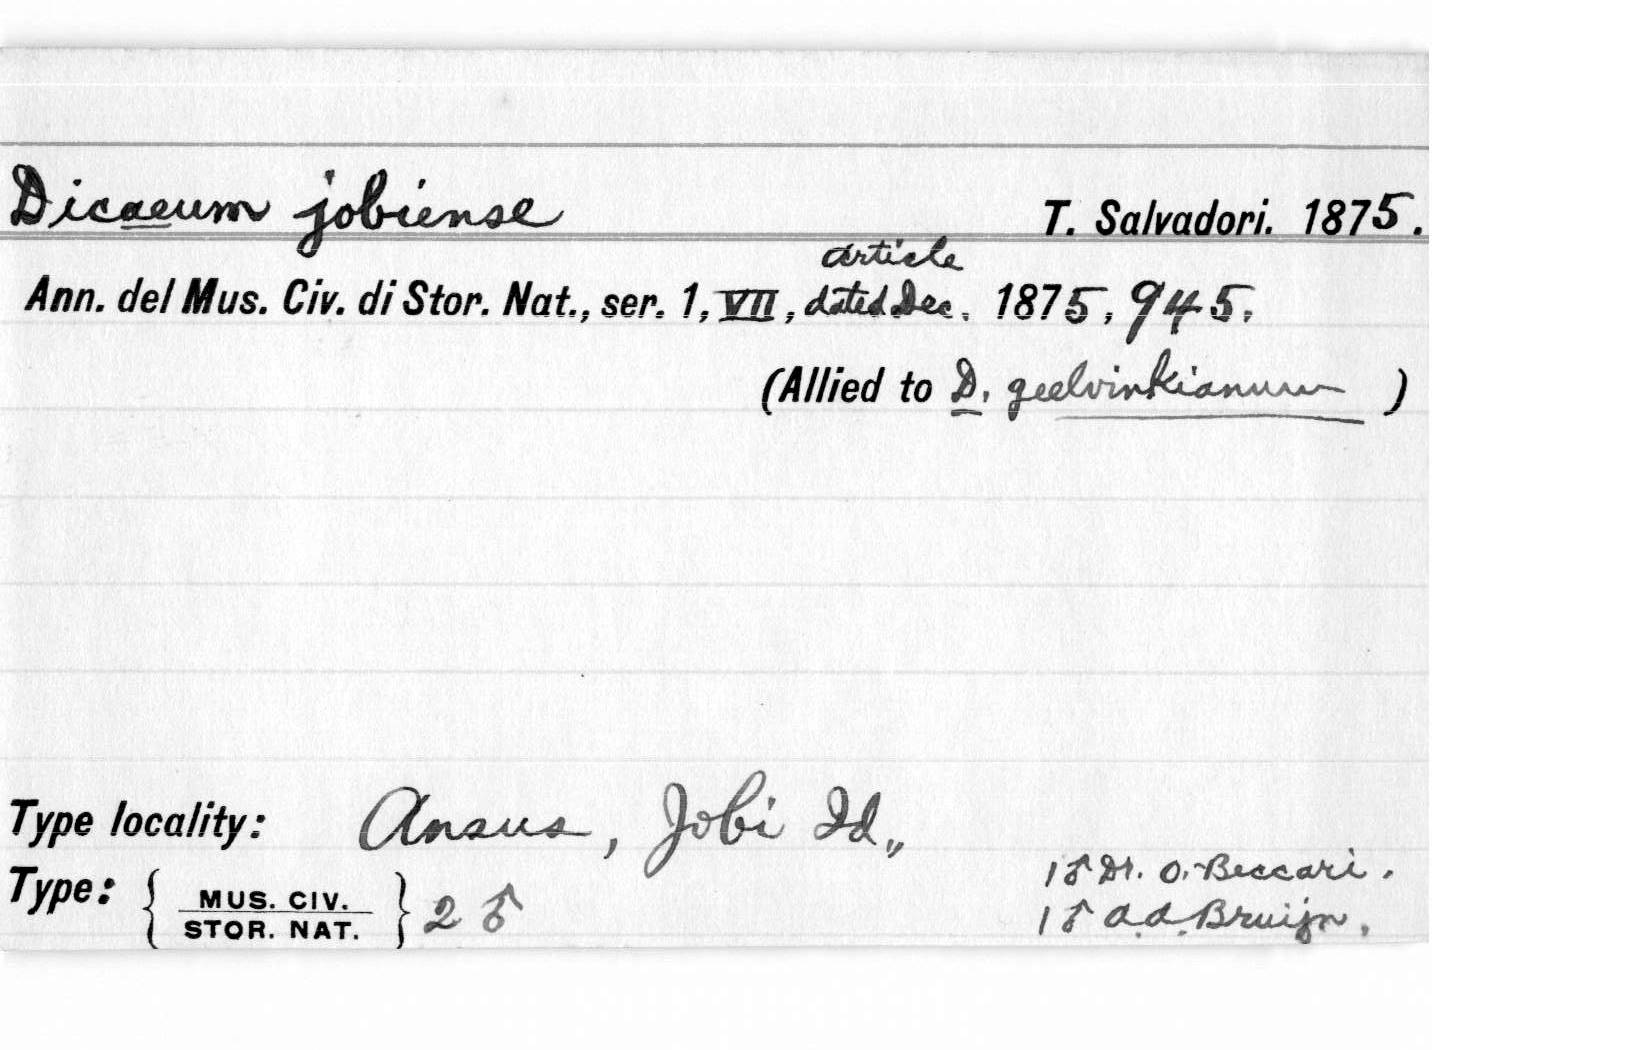 Dicaeum jobiense T. Salvadori. 1875.
article
Ann. del Mus. Civ. di Stor. Nat., ser. 1, VII, dated Dec. 1875, 945.
(Allied to D. geelvinkianum )
Type locality: Ansus, Jobi Id.,
Type: { MUS. CIV. STOR. NAT. } 2 ♂
1 ♂ Dr. O. Beccari.
1 ♂ A.A. Bruijn.